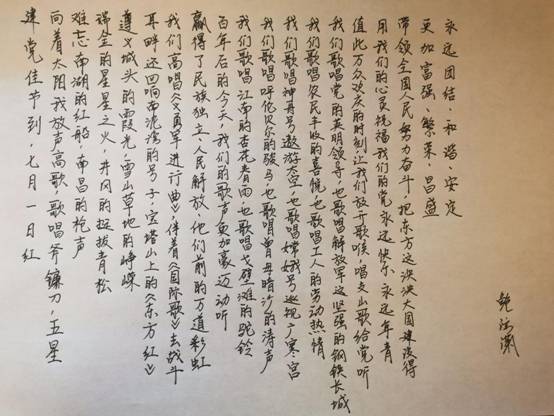 建党佳节到，七月一日红
向着太阳我放声高歌，歌唱斧镰刀，五星
难忘南湖的红船，南昌的枪声
瑞金的星星之火，井冈的挺拔青松
遵义城头的霞光，雪山草地的峥嵘
耳畔还回响南泥湾的号子，宝塔山上的《东方红》
我们高唱《义勇军进行曲》伴着《国际歌》去战斗
赢得了民族独立，人民解放，他们前的万道彩虹
百年后的今天，我们的歌声更加豪迈动听
我们歌唱江南的杏花春雨，也歌唱戈壁滩的驼铃
我们歌唱呼伦贝尔的骏马，也歌唱曾母暗沙的涛声
我们歌唱神舟号遨游太空，也歌唱嫦娥号巡视广寒宫
我们歌唱农民丰收的喜悦，也歌唱工人的劳动热情
我们歌唱党的英明领导，也歌唱解放军这坚强的钢铁长城
值此万众欢庆的时刻，让我们放开歌喉，唱支山歌给党听
用我们的心灵祝福我们的党永远快乐 永远年青
带领全国人民努力奋斗，把东方这泱泱大国建设得
更加富强、繁荣、昌盛
永远团结、和谐、安定